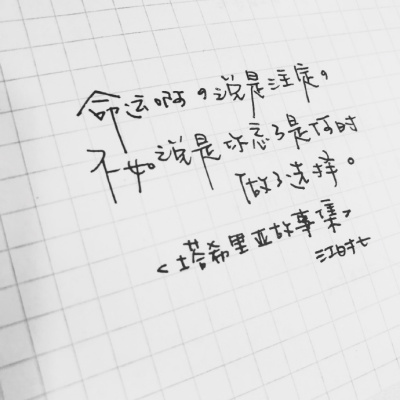 命运啊。说是注定。
不如说是你忘了是何时
做了选择。
<塔希里亚故事集>
江时七